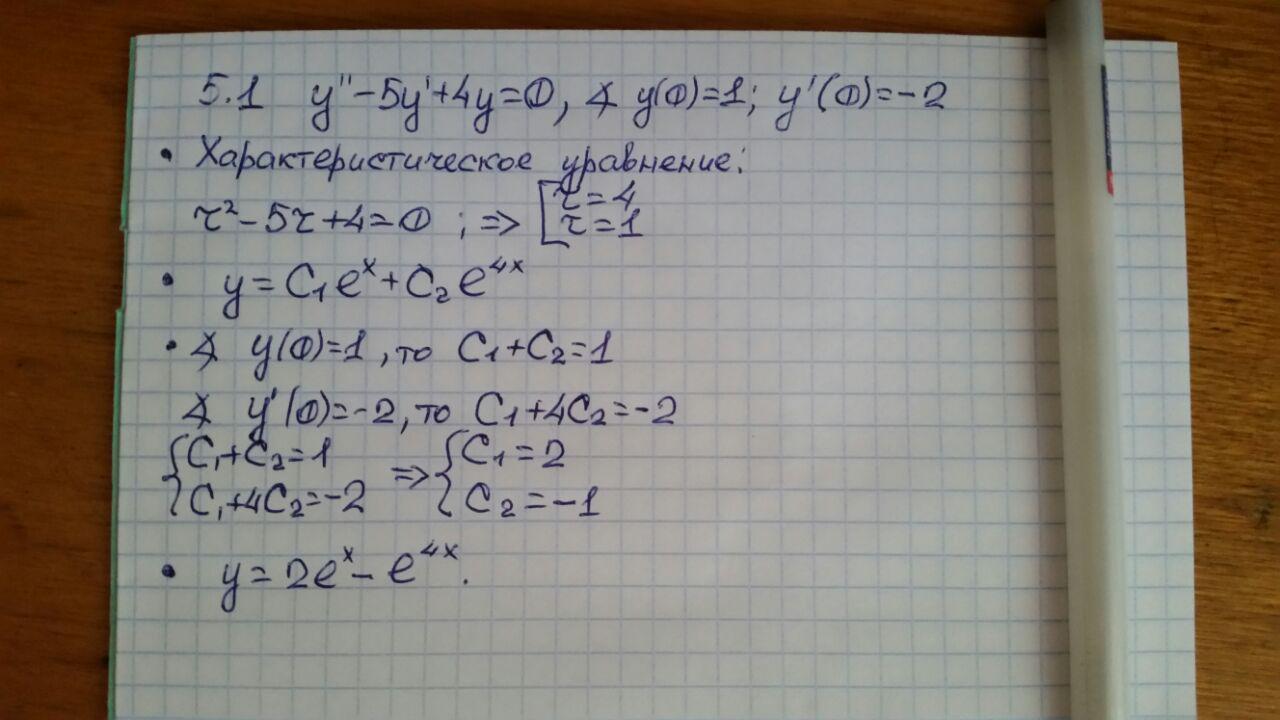 5.1 y''-5y'+4y=0, ∢ y(0)=1; y'(0)=-2
• Характеристическое уравнение:
r²-5r+4=0 ; => [r=4
r=1
• y=C₁eˣ+C₂e⁴ˣ
• ∢ y(0)=1, то C₁+C₂=1
∢ y'(0)=-2, то C₁+4C₂=-2
{C₁+C₂=1 => {C₁=2
C₁+4C₂=-2 C₂=-1
• y=2eˣ-e⁴ˣ.